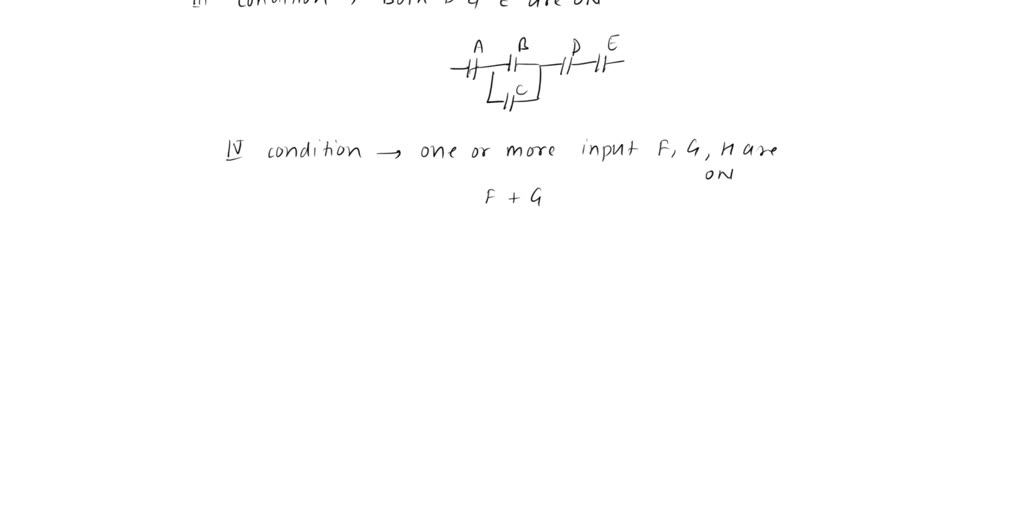 III condition → Both D & E are ON
A B D E
C
IV condition → one or more input F, G, H are
ON
F + G